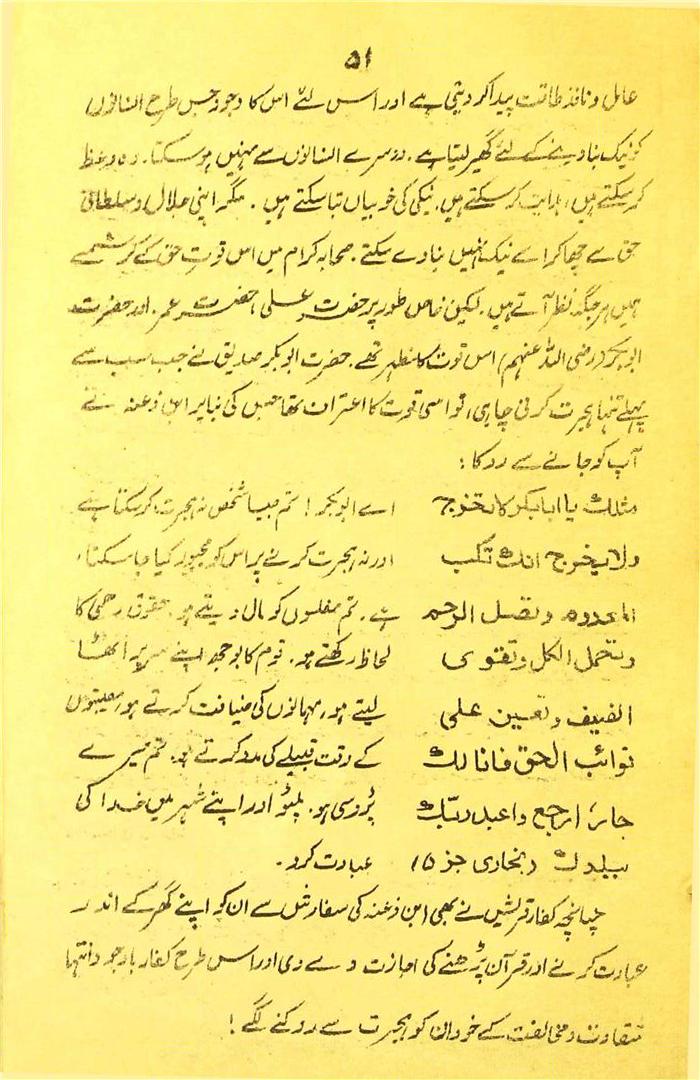 ۵۱
عامل و نافذ طاقت پیدا کر دیتی ہے اور اس لئے اس کا وجود جس طرح انسانوں
کو نیک بنا دینے کے لئے گھیر لیتا ہے۔ دوسرے انسانوں سے نہیں ہو سکتا۔ وہ وعظ
کر سکتے ہیں، ہدایت کر سکتے ہیں، نیکی کی خوبیاں بتا سکتے ہیں۔ مگر اپنی جلال و سلطانی
حق سے چھا کر اسے نیک نہیں بنا دے سکتے۔ صحابہ کرام میں اس قوتِ حق کے کرشمے
ہمیں ہر جگہ نظر آتے ہیں۔ لیکن خاص طور پر حضرت علی، حضرت عمر، اور حضرت
ابوبکر (رضی اللہ عنہم) اس قوت کا مظہر تھے۔ حضرت ابوبکر صدیق نے جب سب سے
پہلے تنہا ہجرت کرنی چاہی، تو اسی قوت کا اعتراف تھا جس کی بنا پر ابن دغنہ نے
آپ کو جانے سے روکا:
مثلك يا ابا بكر لا يخرج اے ابوبکر! تم جیسا شخص نہ ہجرت کر سکتا ہے
ولا يخرج انك تكسب اور نہ ہجرت کرنے پر اس کو مجبور کیا جا سکتا،
المعدوم وتصل الرحم ہے۔ تم مفلسوں کو مال دیتے ہو۔ حقوق رحمی کا
وتحمل الكل وتقوى لحاظ رکھتے ہو۔ قوم کا بوجھ اپنے سر پر اٹھا
الضيف وتعين على لیتے ہو، مہمانوں کی ضیافت کرتے ہو، مصیبتوں
نوائب الحق فانا لك کے وقت قبیلے کی مدد کرتے ہو۔ تم میرے
جار، ارجع واعبد ربك پڑوسی ہو۔ پلٹو اور اپنے شہر میں خدا کی
ببلدك (بخاری جز ۱۵ عبادت کرو۔
چنانچہ کفار قریش نے بھی ابن دغنہ کی سفارش سے ان کو اپنے گھر کے اندر
عبادت کرنے اور قرآن پڑھنے کی اجازت دے دی اور اس طرح کفار باوجود انتہا
شقاوت و مخالفت کے خود ان کو ہجرت سے روکنے لگے!